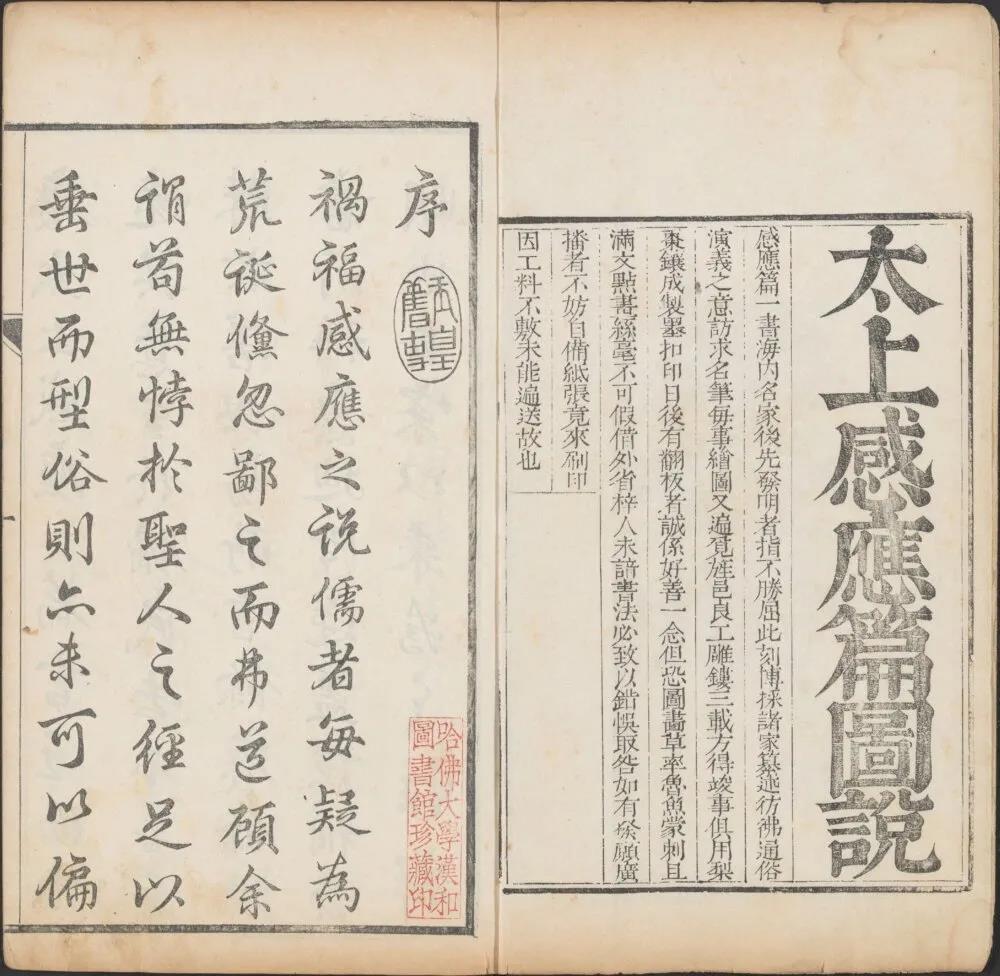 太上感應篇圖說
感應篇一書海内名家後先發明者指不勝屈此刻博採諸家纂述彷彿通俗
演義之意訪求名筆每事繪圖又遍覓旌邑良工雕鏤三載方得竣事俱用梨
棗鑲成製墨扣印日後有翻板者誠係好善一念但恐圖畫草率魯魚蒙刺且
滿文點畫絲毫不可假借外省梓人未諳書法必致以錯悞取咎如有發願廣
播者不妨自備紙張竟來刷印
因工料不敷未能遍送故也
序
禍福感應之説儒者每疑為
荒誕儻忽鄙之而弗道顧余
謂苟無悖於聖人之經足以
垂世而型俗則亦未可以偏
哈佛大學漢和
圖書館珍藏印